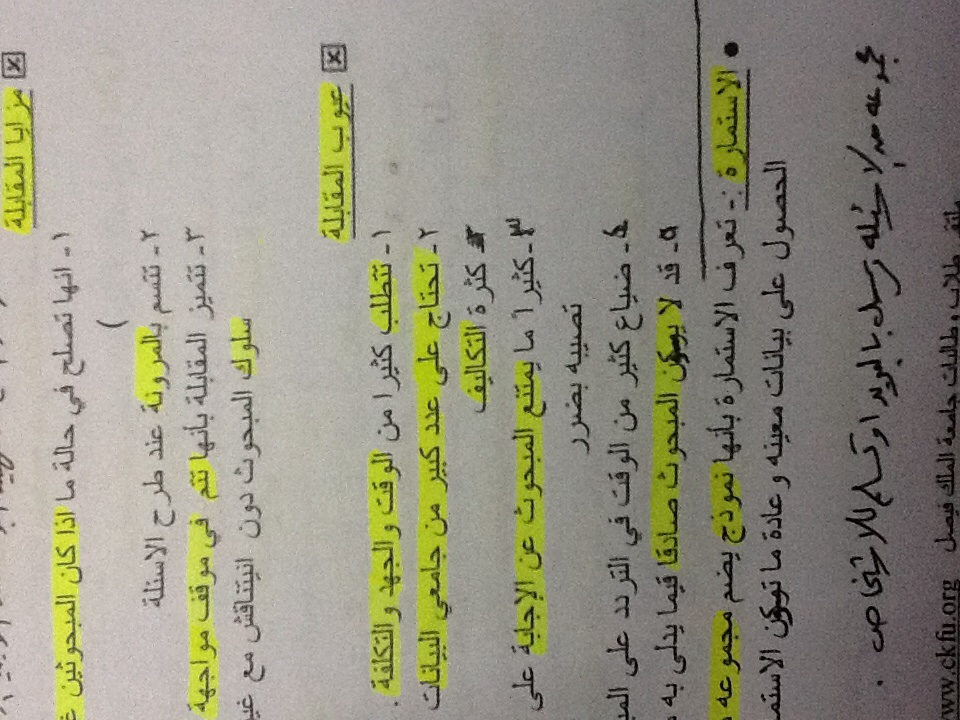 مزايا المقابلة
١- انها تصلح في حالة ما اذا كان المبحوثين
(
٢- تتسم بالمرونة عند طرح الاسئلة
٣- تتميز المقابلة بأنها تتم في موقف مواجهة
سلوك المبحوث دون انيتناقش مع
عيوب المقابلة
١- تتطلب كثيرا من الوقت والجهد والتكلفة .
٢- تحتاج على عدد كبير من جامعي البيانات
كثرة التكاليف
٣- كثيرا ما يمتنع المبحوث عن الإجابة على
تصيبه بضرر
٤- ضياع كثير من الوقت في التردد على
٥- قد لا يكون المبحوث صادقا فيما يدلى به
• الاستمارة :- تعرف الاستمارة بأنها نموذج يضم مجموعه
الحصول على بيانات معينه وعادة ما تكون
مجموعه من الاسئله ترسل بالبريد او تسلم للاشخاص .
ملتقى طلاب وطالبات جامعة الملك فيصل www.ckfu.org